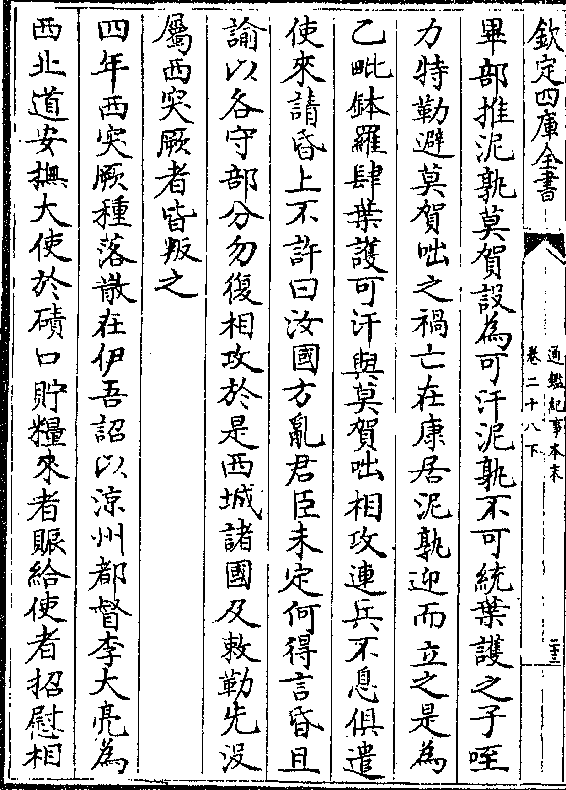 欽定四庫全書
通鑑紀事本末
卷二十八下
二十三
畢部推泥孰莫賀設為可汗泥孰不可統葉護之子咥
力特勒避莫賀咄之禍亡在康居泥孰迎而立之是為
乙毗鉢羅肆葉護可汗與莫賀咄相攻連兵不息俱遣
使來請昏上不許曰汝國方亂君臣未定何得言昏且
諭以各守部分勿復相攻於是西城諸國及敕勒先没
屬西突厥者皆叛之
四年西突厥種落散在伊吾詔以涼州都督李大亮為
西北道安撫大使於磧口貯糧來者賑給使者招慰相